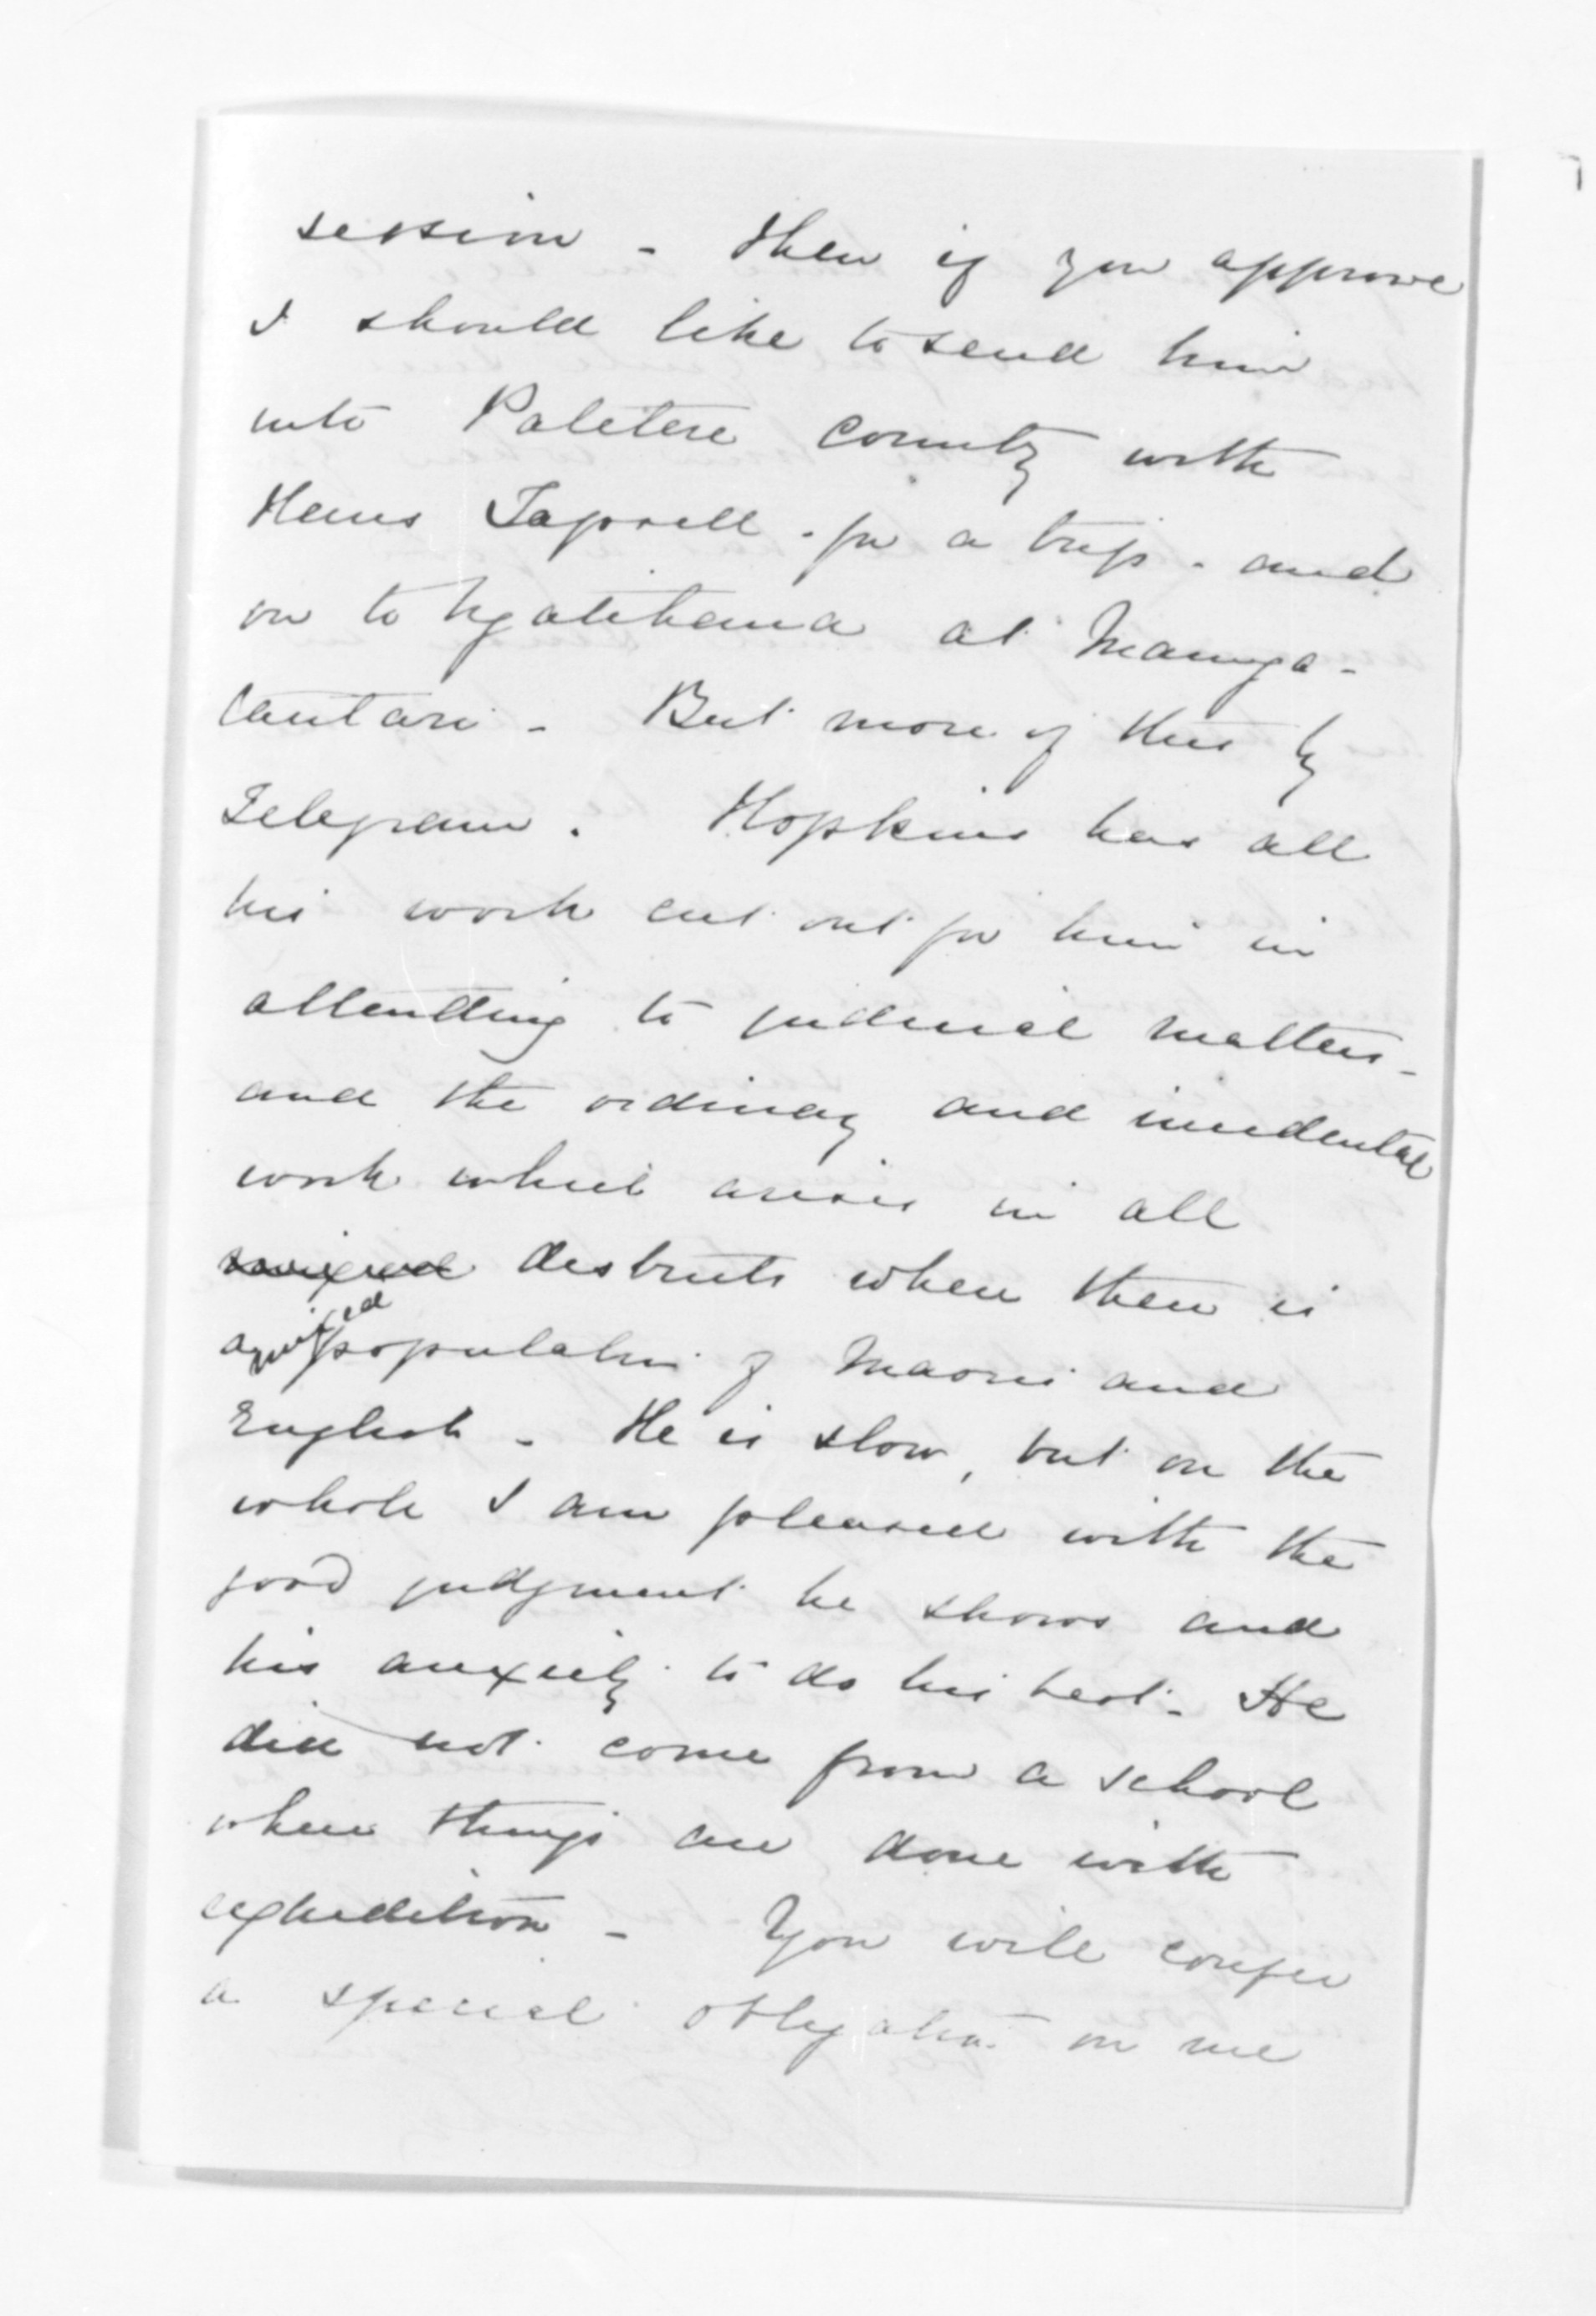 session - then if you approve
I should like to send him
into Patetere County with
Hans Tapsell - for a trip - and
on to Ngatihaua at Maunga-
tautari - But more of this by
Telegram. Hopkins has all
his work cut out for him in
attending to judicial matters -
and the ordinary and incidental
work which arises in all
mixed districts when there is
a mixed population of Maoris and
English - He is slow, but on the
whole I am pleased with the
good judgment he shows and
his anxiety to do his best - He
did not come from a school
where things are done with
expedition - You will confer
a special obligation on me